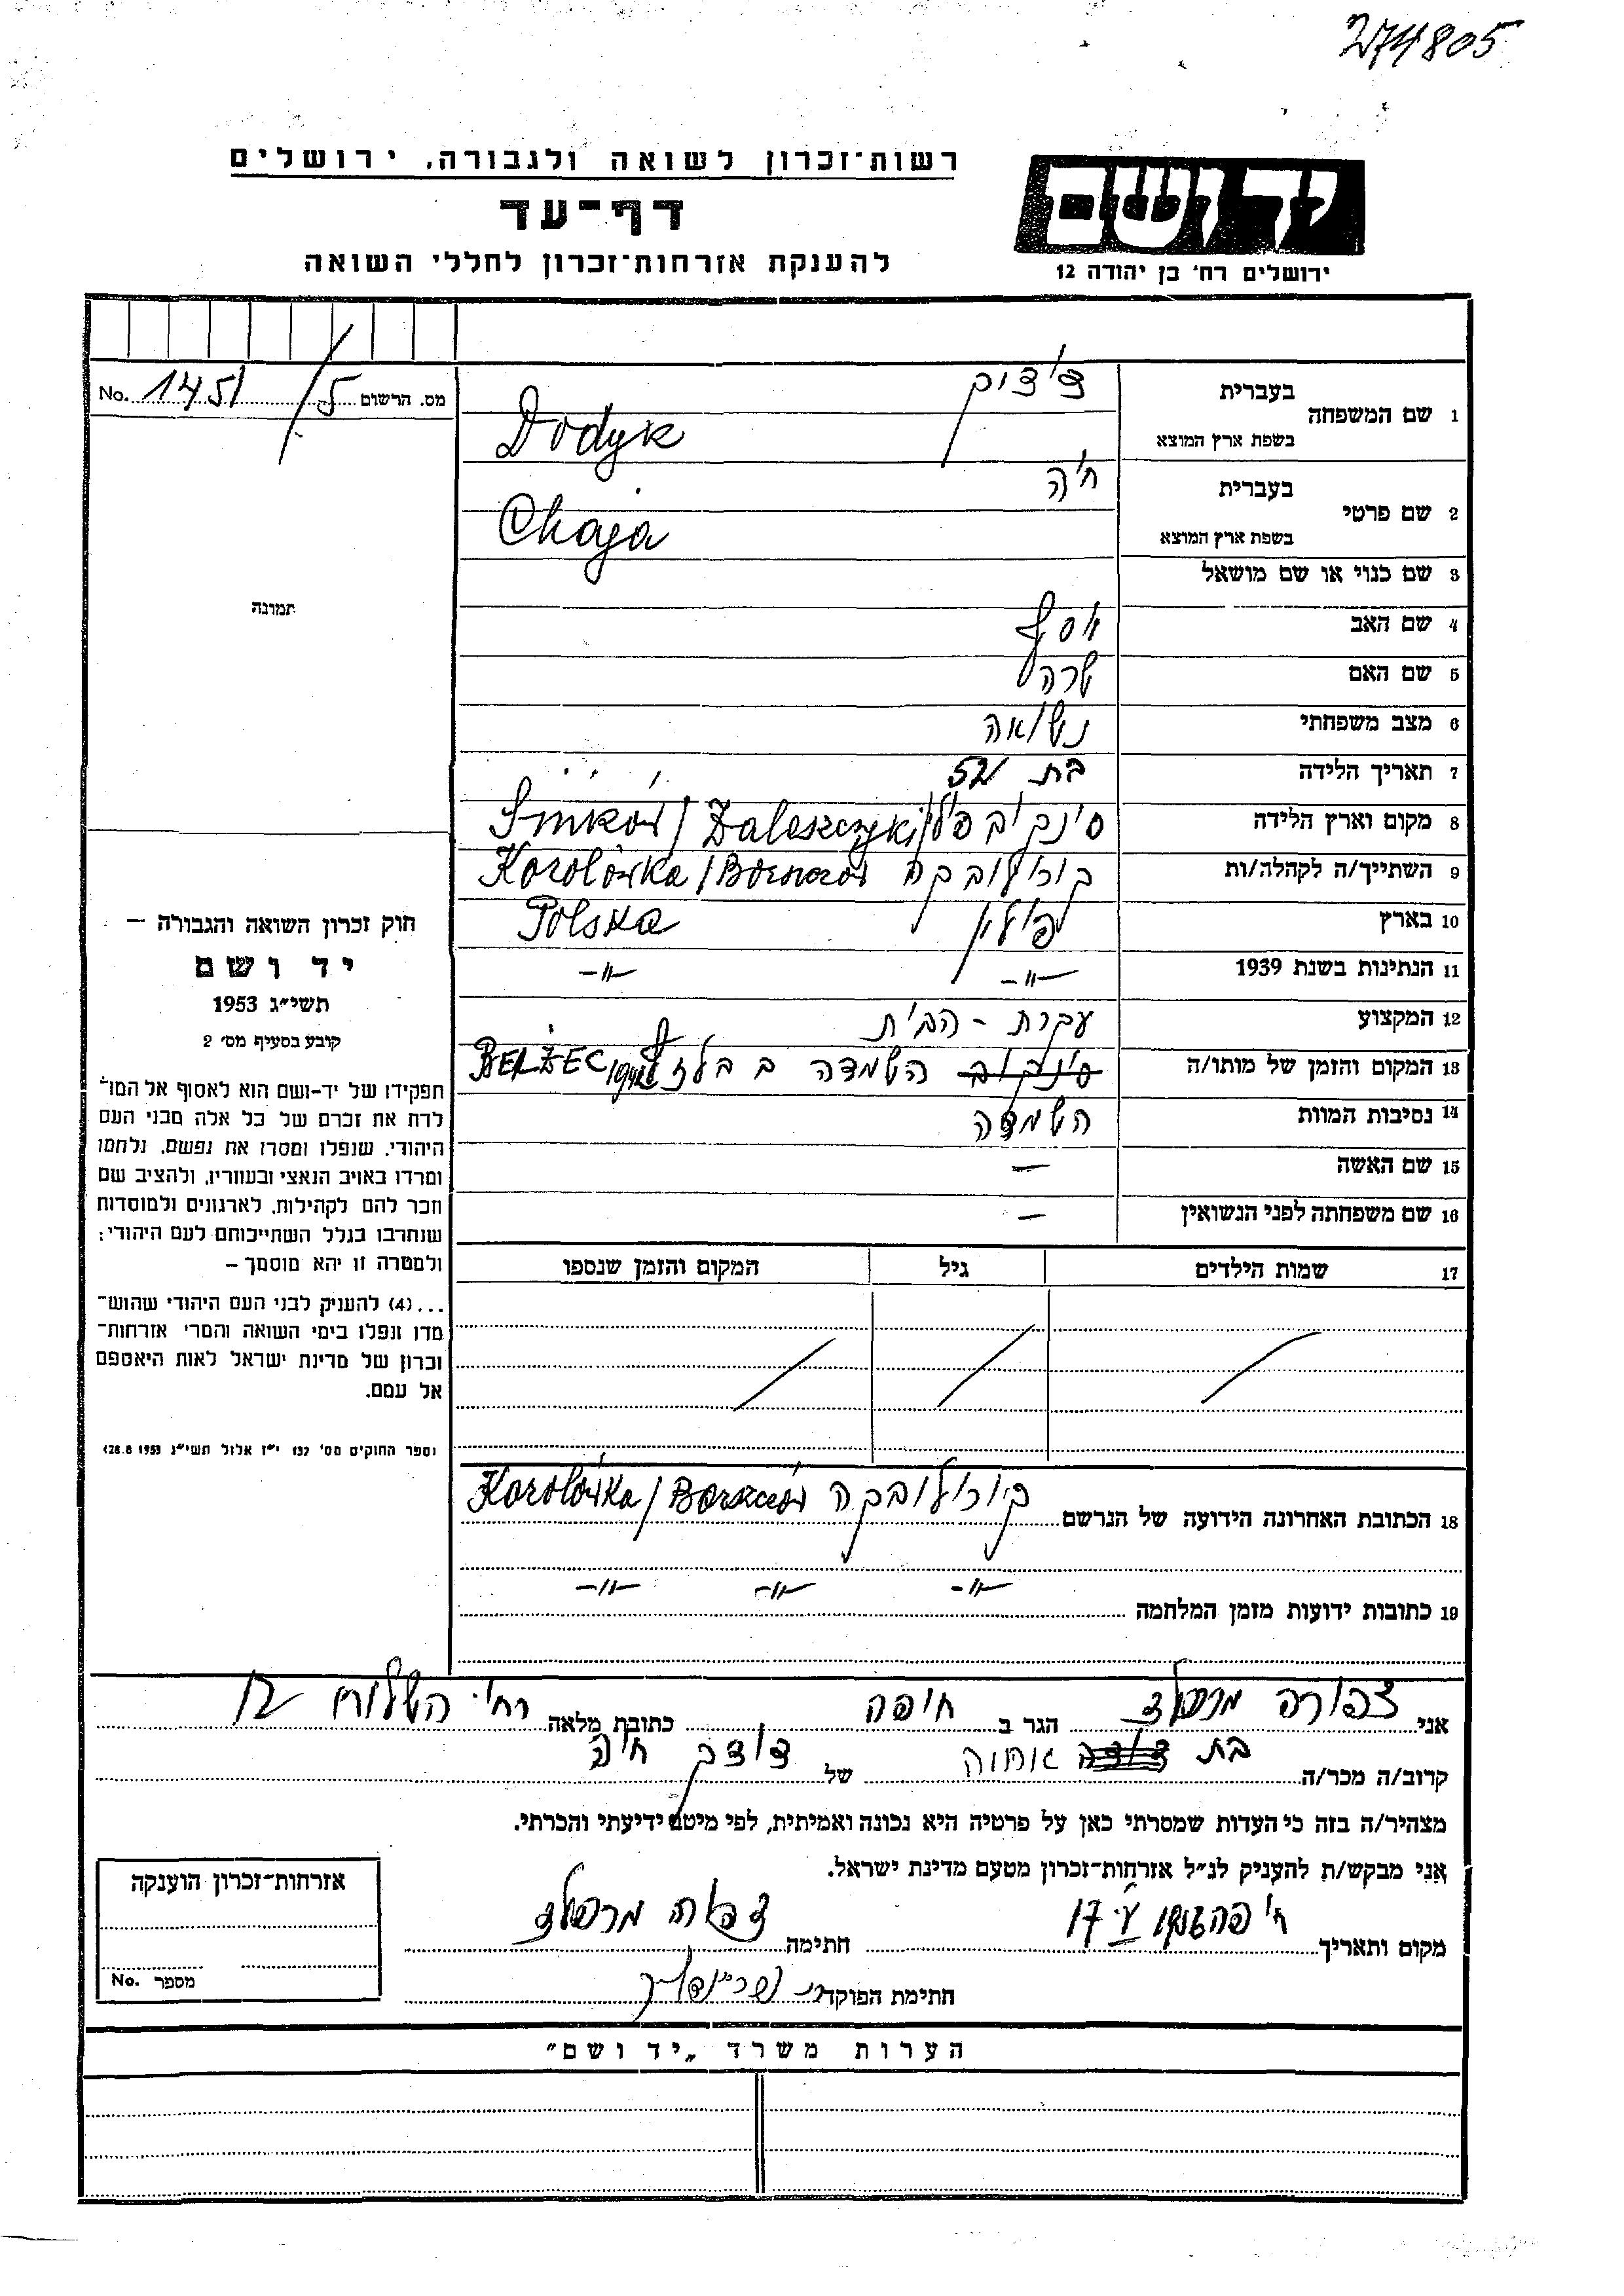 274805
ידושם
ירושלים רח' בן יהודה 12
רשות־זכרון לשואה ולגבורה, ירושלים
דף־עד
להענקת אזרחות־זכרון לחללי השואה
No. 1451/5 מס. הרשום
1 שם המשפחה
בעברית
בשפת ארץ המוצא
Dodyk
2 שם פרטי
בעברית חיה
בשפת ארץ המוצא
Chaja
3 שם כנוי או שם מושאל
4 שם האב
5 שם האם שרה
6 מצב משפחתי נשואה
7 תאריך הלידה בת 52
8 מקום וארץ הלידה סינקוב פולין Sinków / Zaleszczyki
9 השתייך/ה לקהלה/ות קורולובקה Korolówka / Borszczów
10 בארץ פולין Polska
11 הנתינות בשנת 1939 -"- -"-
12 המקצוע עקרת - הבית
13 המקום והזמן של מותו/ה סינקוב השמדה ב בלזץ BEŁŻEC 1942
14 נסיבות המוות השמדה
15 שם האשה —
16 שם משפחתה לפני הנשואין —
17 שמות הילדים גיל המקום והזמן שנספו
18 הכתובת האחרונה הידועה של הנרשם קורולובקה Korolówka / Borszczów
-"- -"- -"-
19 כתובות ידועות מזמן המלחמה
תמונה
חוק זכרון השואה והגבורה —
יד ושם
תשי״ג 1953
קובע בסעיף מס׳ 2
תפקידו של יד-ושם הוא לאסוף אל המו־
לדת את זכרם של כל אלה מבני העם
היהודי, שנפלו ומסרו את נפשם, נלחמו
ומרדו באויב הנאצי ובעוזריו, ולהציב שם
וזכר להם לקהילות, לארגונים ולמוסדות
שנחרבו בגלל השתייכותם לעם היהודי;
ולמטרה זו יהא מוסמך —
...(4) להעניק לבני העם היהודי שהוש־
מדו ונפלו בימי השואה והמרי אזרחות־
זכרון של מדינת ישראל לאות היאספם
אל עמם.
(ספר החוקים מס׳ 132 י״ז אלול תשי״ג 28.8.1953)
אני צפורה מרפלד הגר ב חיפה כתובת מלאה רח׳ השלוח 12
קרוב/ה מכר/ה בת אחוה של דודק חיה
מצהיר/ה בזה כי העדות שמסרתי כאן על פרטיה היא נכונה ואמיתית, לפי מיטב ידיעתי והכרתי.
אני מבקש/ת להעניק לנ״ל אזרחות־זכרון מטעם מדינת ישראל.
מקום ותאריך חיפה חתימה צפורה מרפלד
חתימת הפוקד
אזרחות־זכרון הוענקה
מספר No.
הערות משרד „יד ושם״